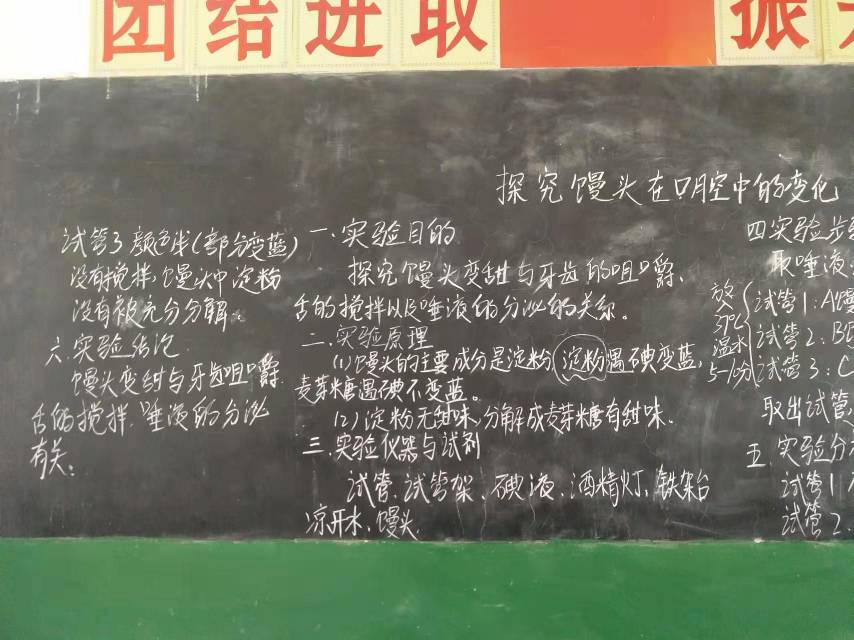 团结进取
振
探究馒头在口腔中的变化
试管3颜色浅(部分变蓝)
没有搅拌,馒头中淀粉
没有被充分分解。
六.实验结论
馒头变甜与牙齿咀嚼.
舌的搅拌.唾液的分泌
有关.
一.实验目的
探究馒头变甜与牙齿的咀嚼、
舌的搅拌以及唾液的分泌的关系。
二.实验原理
(1)馒头的主要成分是淀粉,淀粉遇碘变蓝,
麦芽糖遇碘不变蓝。
(2)淀粉无甜味,分解成麦芽糖有甜味.
三.实验仪器与试剂
试管、试管架、碘液、酒精灯、铁架台
凉开水、馒头.
四实验步骤
取唾液
放入
37℃
温水
5-10分
试管1:A馒
试管2:B
试管3:C
取出试管
五.实验分
试管1
试管2.